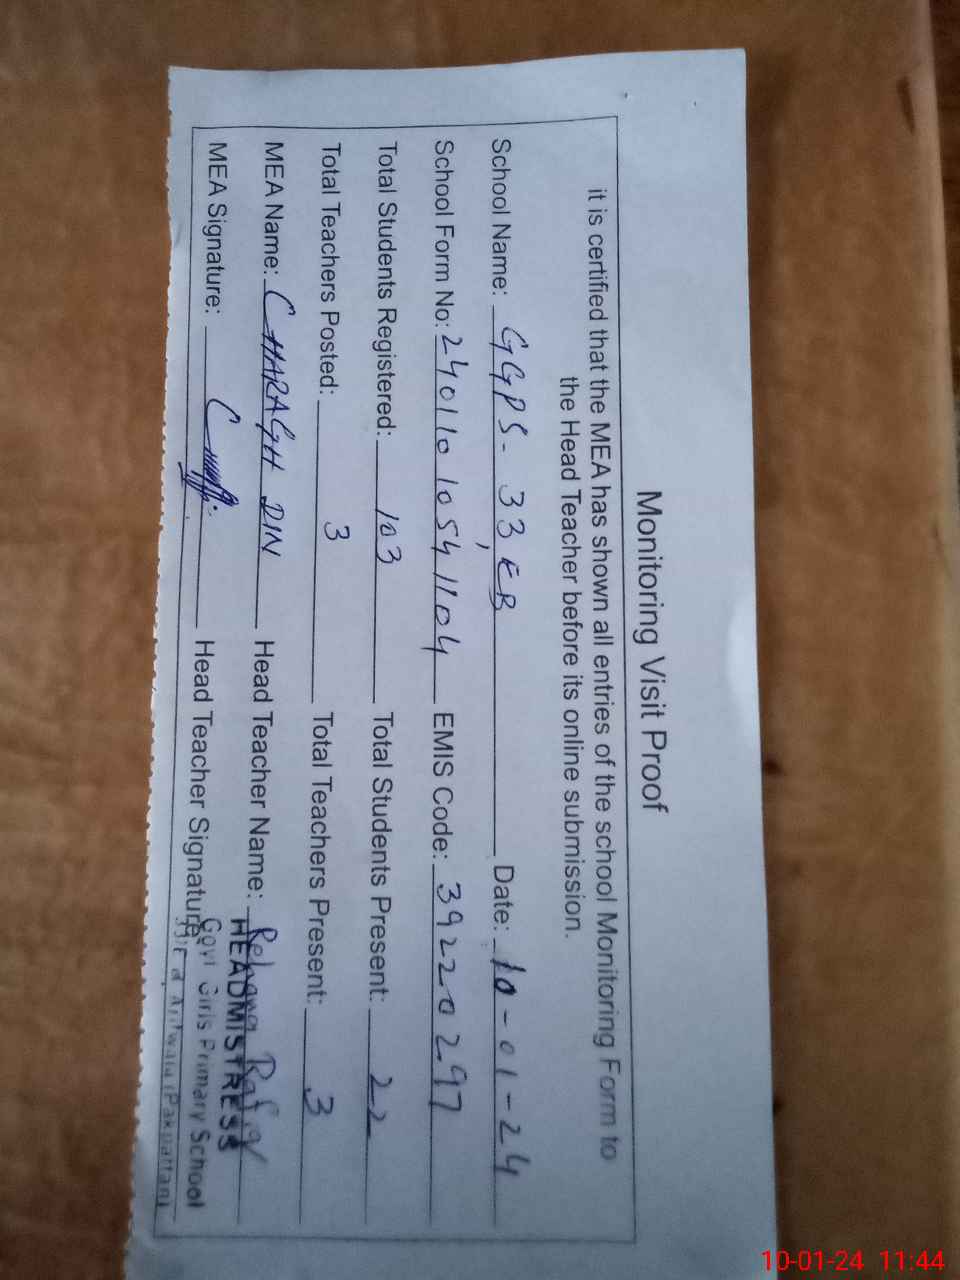 Monitoring Visit Proof
it is certified that the MEA has shown all entries of the school Monitoring Form to
the Head Teacher before its online submission.
School Name: GGPS- 33, EB Date: 10-01-24
School Form No: 240110 10541104 EMIS Code: 39220297
Total Students Registered: 103 Total Students Present: 22
Total Teachers Posted: 3 Total Teachers Present: 3
MEA Name: CHARAGH DIN Head Teacher Name: Rehana Rafiq
HEADMISTRESS
MEA Signature: Head Teacher Signature:
Govt Girls Primary School
33/E.B Arifwala (Pakpattan)
10-01-24 11:44